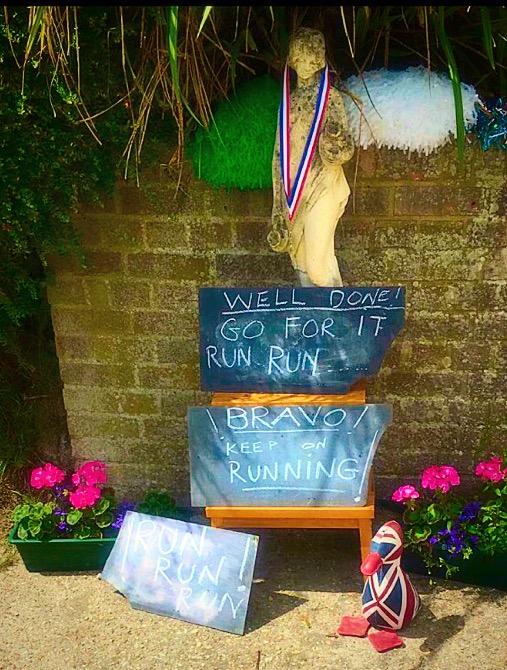 WELL DONE!
GO FOR IT
RUN RUN.....
! BRAVO!
KEEP ON
RUNNING!
RUN
RUN !
RUN